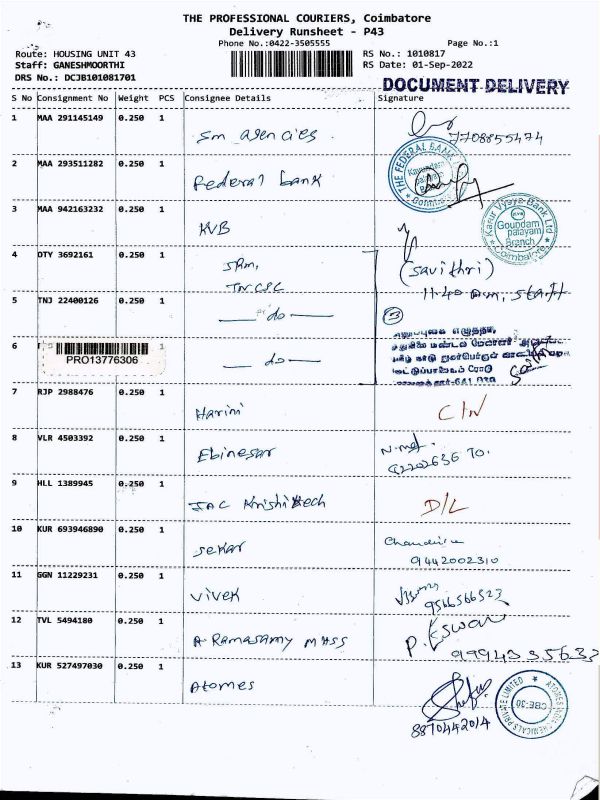 THE PROFESSIONAL COURIERS, Coimbatore
Delivery Runsheet - P43
Phone No.:0422-3505555
Page No.:1
Route: HOUSING UNIT 43
RS No.: 1010817
Staff: GANESHMOORTHI
RS Date: 01-Sep-2022
DRS No.: DCJB101081701
DOCUMENT DELIVERY
S No Consignment No Weight PCS Consignee Details Signature
1 MAA 291145149 0.250 1 Sm agencies
7708855474
2 MAA 293511282 0.250 1 Federal bank
THE FEDERAL BANK
3 MAA 942163232 0.250 1 KVB
Karur Vysya Bank Ltd
Goundam palayam Branch
Coimbatore
4 DTY 3692161 0.250 1 SRM,
TNCSC
(Savithri)
11.40 am, staff
5 TNJ 22400126 0.250 1 do
3
6 0.250 1 do
PRO13776306
7 RJP 2988476 0.250 1 Harini C/N
8 VLR 4503392 0.250 1 Ebinesar
9 HLL 1389945 0.250 1 JAC Krishi tech D/L
10 KUR 693946890 0.250 1 Sekar
9442002310
11 GGN 11229231 0.250 1 Vivek
9566566523
12 TVL 5494180 0.250 1 A. Ramasamy MASS P. Eswar
9994335633
13 KUR 527497030 0.250 1 Atomes
8870442014
CBE-30